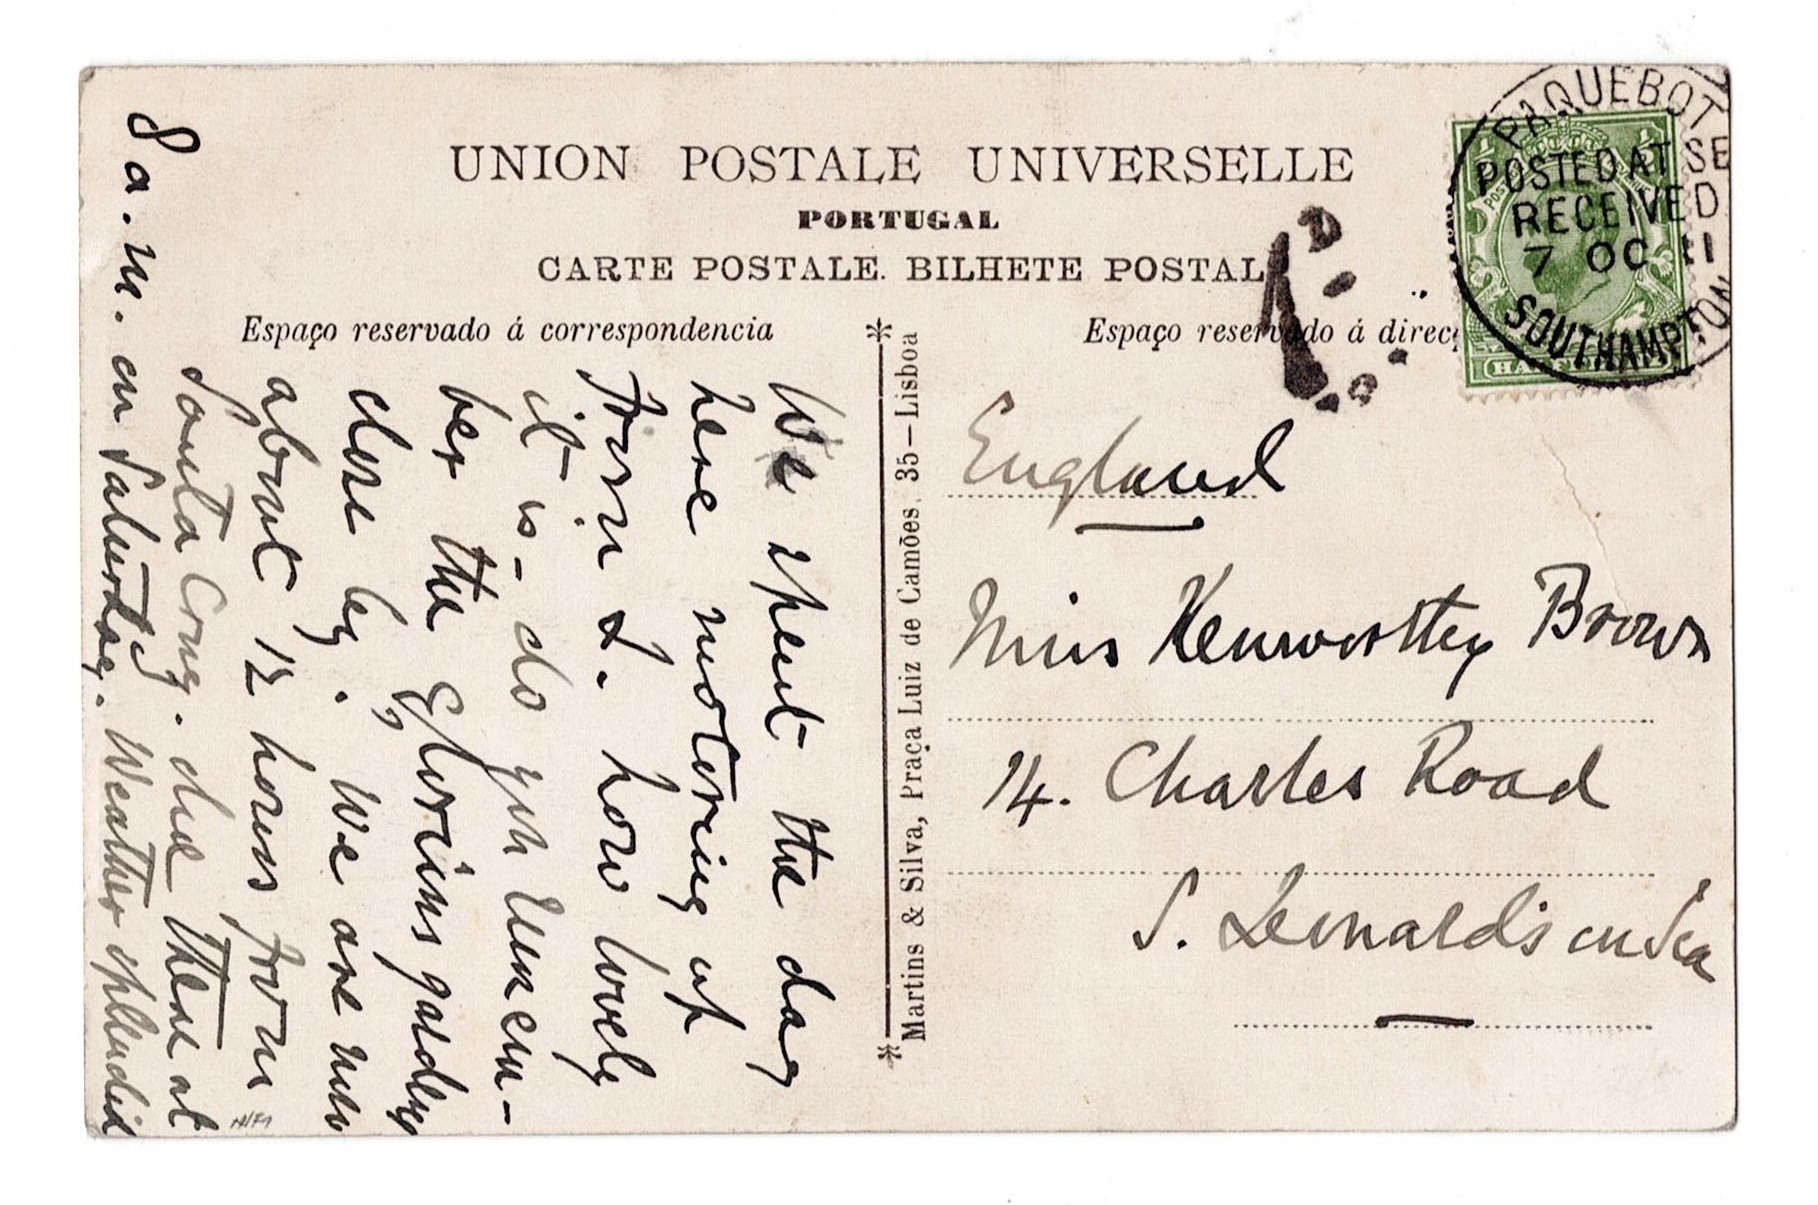 UNION POSTALE UNIVERSELLE
PORTUGAL
CARTE POSTALE. BILHETE POSTAL
Espaço reservado á correspondencia
Espaço reservado á direcç
We spent the day
here motoring up
from L. how lovely
it is - do you remem-
ber the glorious gardens
close by. We are now
about 12 hours from
Santa Cruz. due there at
8 a.m. on Saturday. Weather splendid
Martins & Silva, Praça Luiz de Camões, 35 — Lisboa
PAQUEBOT
POSTED AT SE
RECEIVED
7 OC 11
SOUTHAMPTON
England
Miss Kenworthy Brown
14. Charles Road
S. Leonard's on Sea